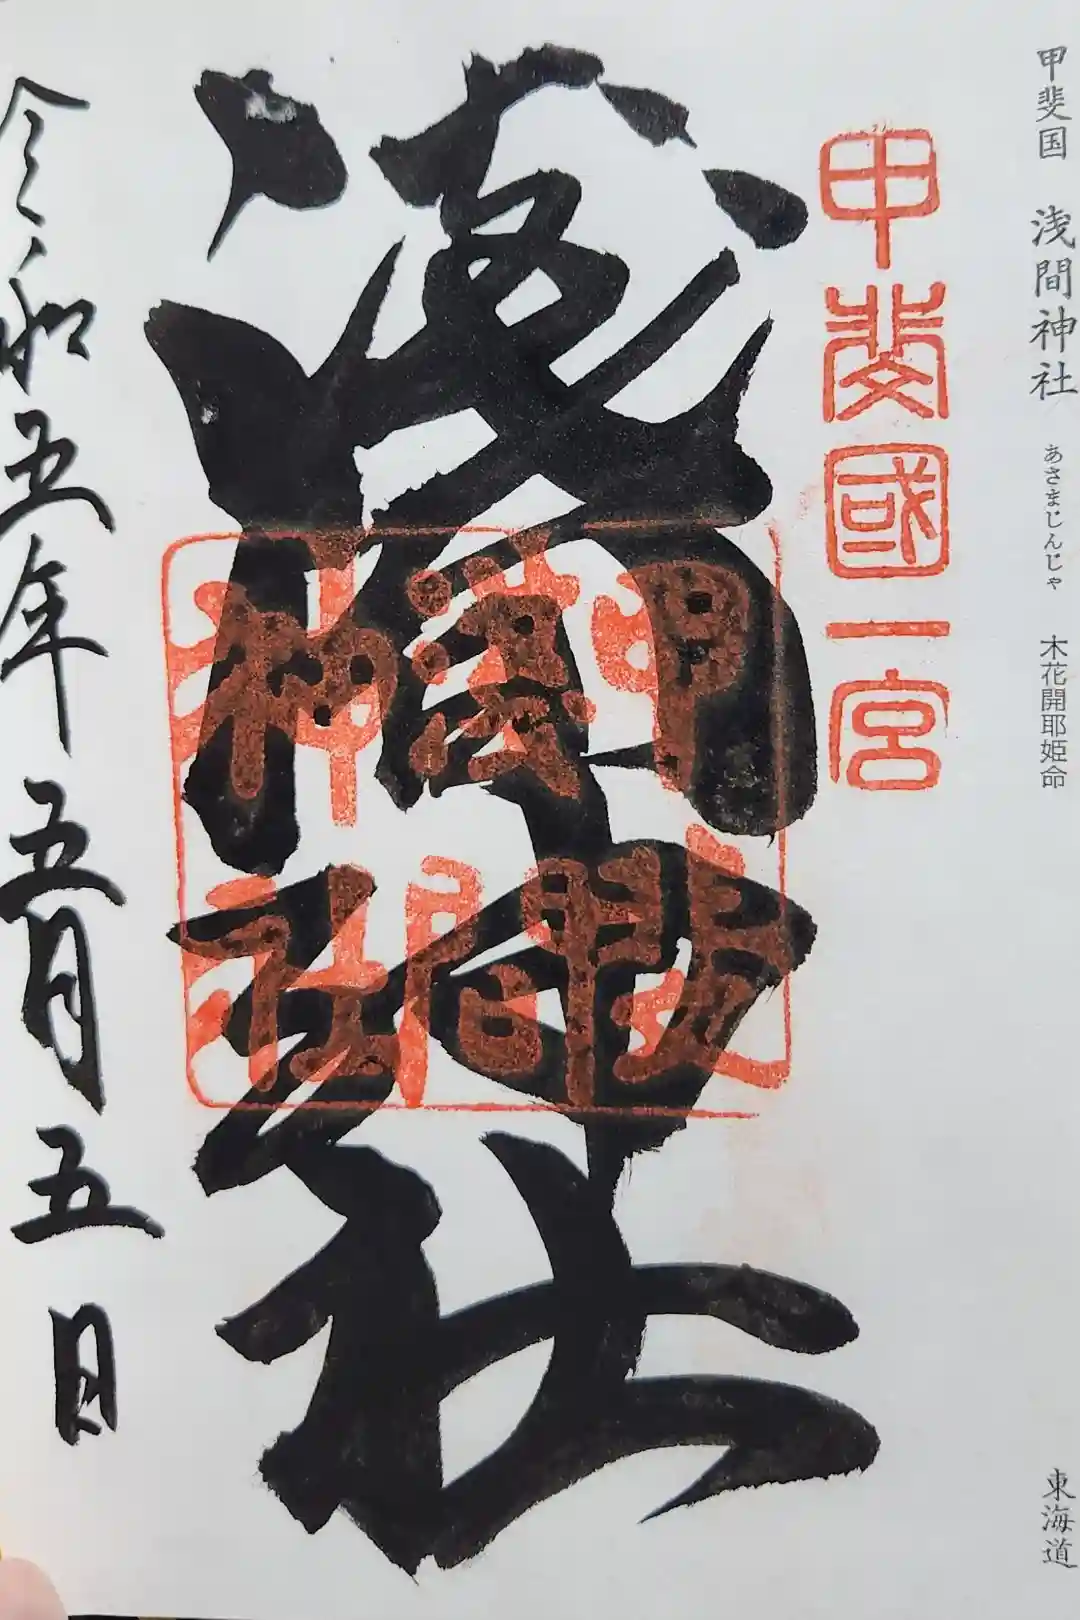 甲斐国 浅間神社 あさまじんじゃ 木花開耶姫命 東海道
甲斐國一宮
浅間神社
甲斐國淺間神社
令和五年五月五日